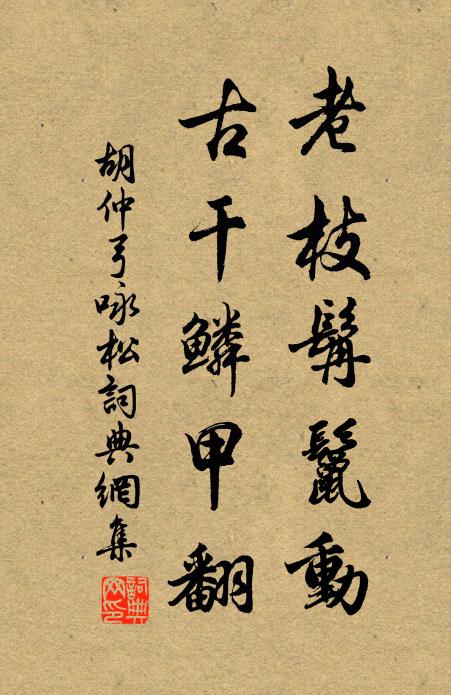 老枝髯鬣動
古干鱗甲翻
胡仲弓咏松詞典網集
詞典網印